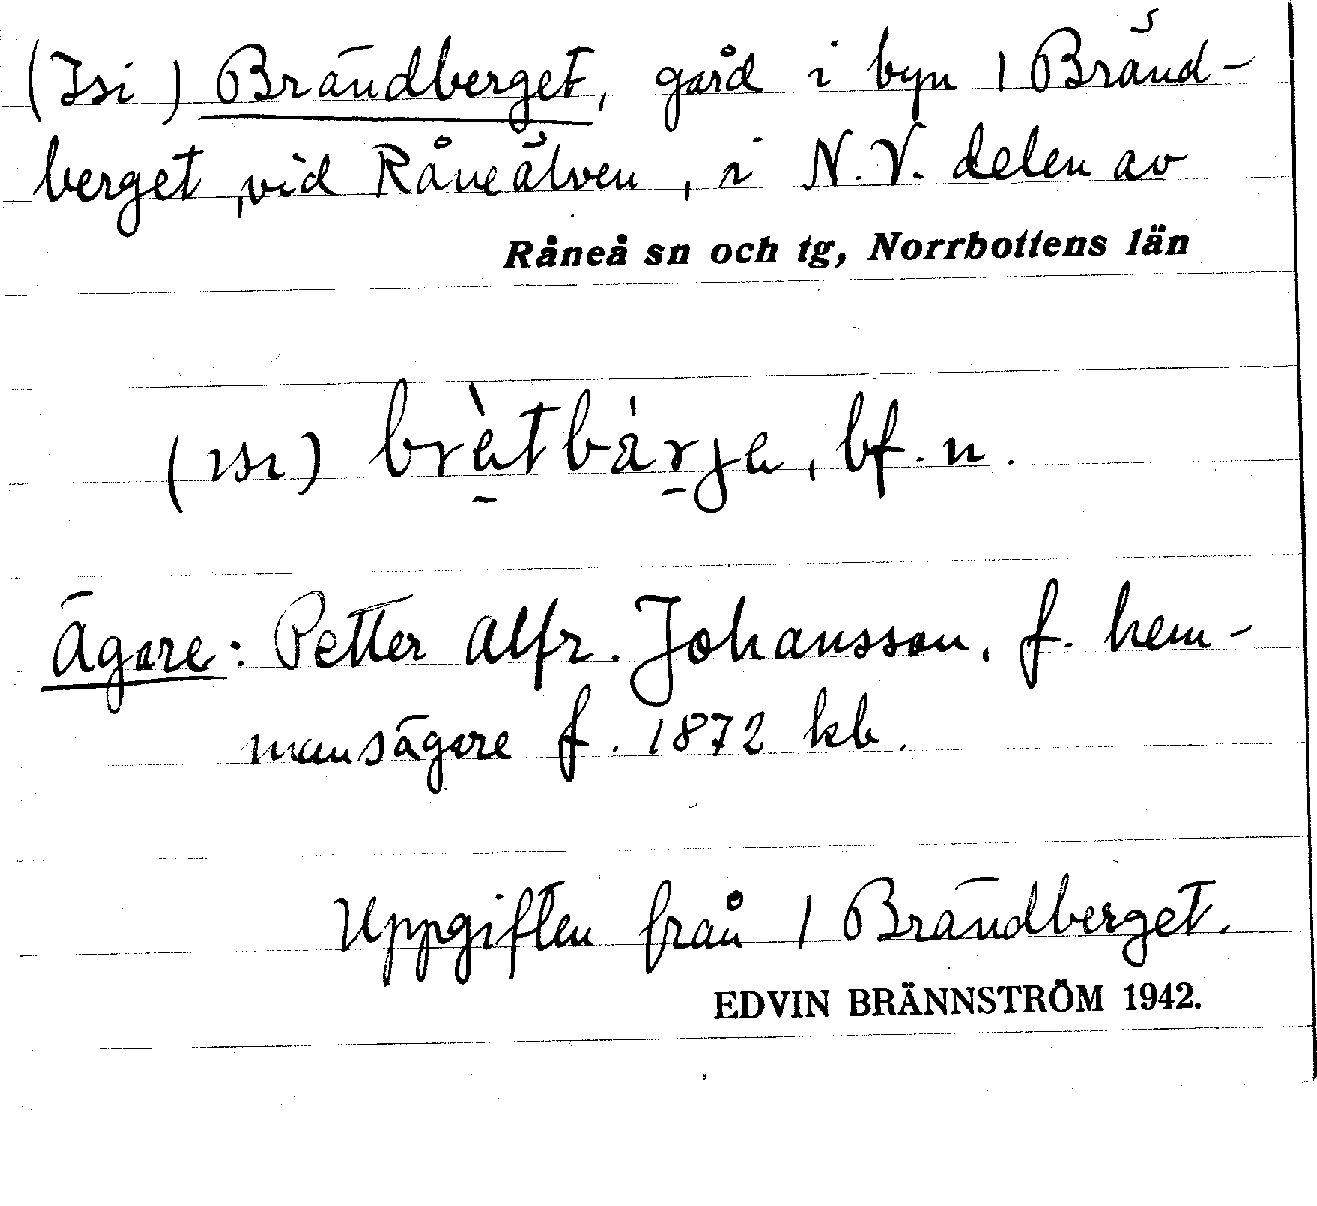 (Isi) Brändberget, gård i byn 1 Bränd-
berget, vid Råneälven, i N.V. delen av
Råneå sn och tg, Norrbottens län
(ısı) brät̀bárja, bf. n.
Ägare: Petter Alfr. Johansson, f. hem-
mansägare f. 1872 kb.
Uppgiften från 1 Brändberget.
EDVIN BRÄNNSTRÖM 1942.